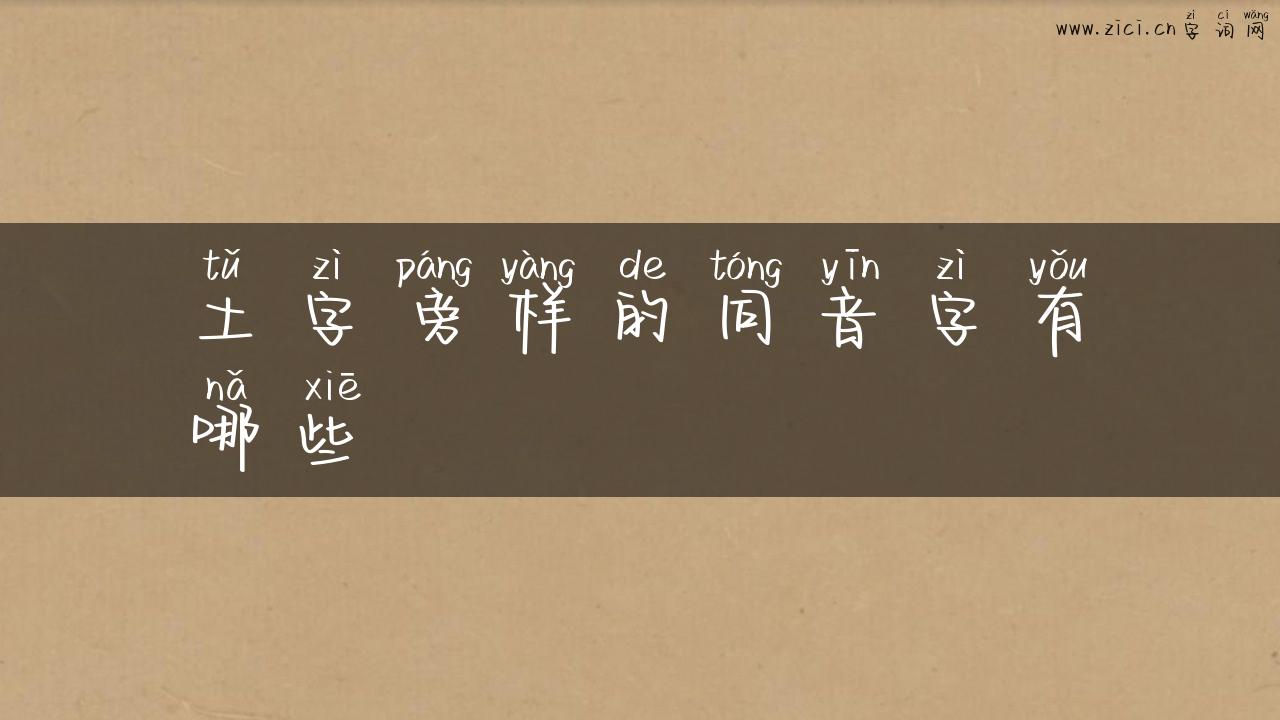 zì cí wǎng
www.zici.cn 字 词 网
tǔ zì páng yàng de tóng yīn zì yǒu
土 字 旁 样 的 同 音 字 有
nǎ xiē
哪 些